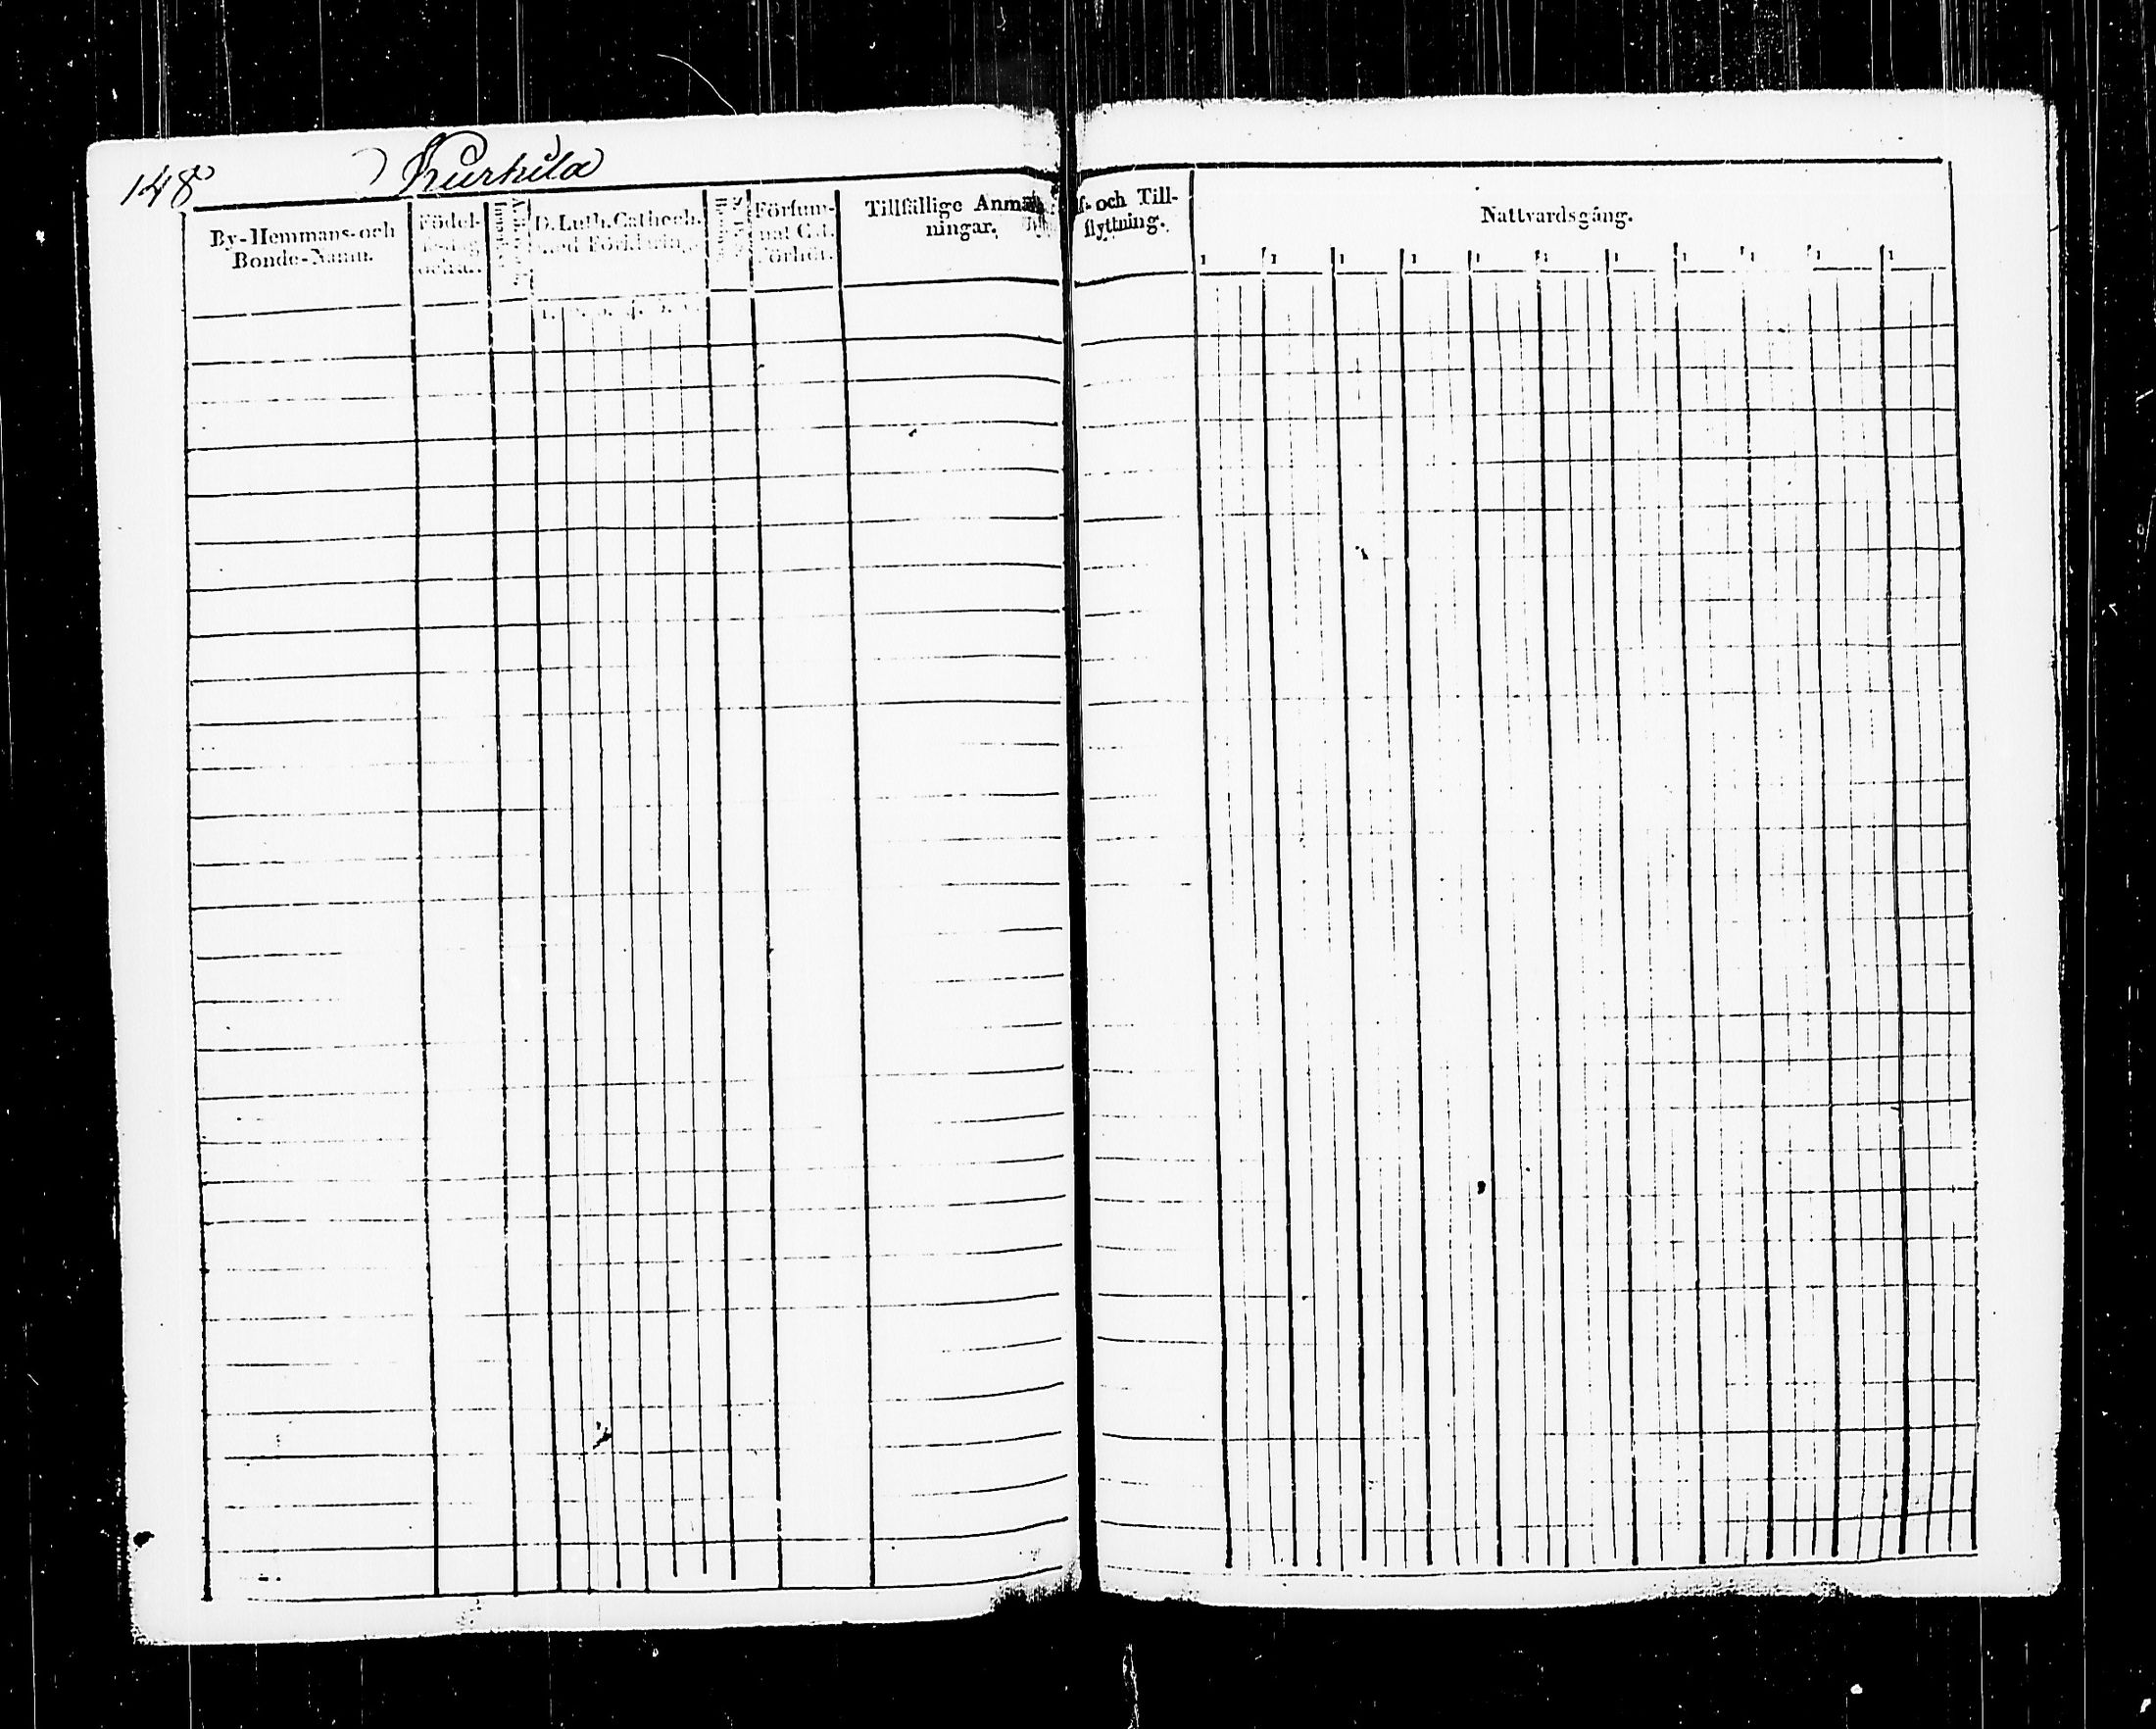 148
Kurkila
By-Hemmans-och
Bonde-Namn.
Födel-
D. Luth. Cathech.
med Förklaring.
Försum-
nat Cat.
Förhör.
Tillfällige Anmär-
ningar.
f- och Till-
flyttning.
Nattvardsgång.
1 1 1 1 1 1 1 1 1 1 1